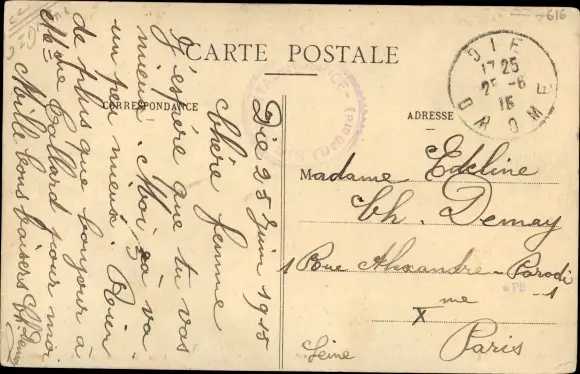 CARTE POSTALE
CORRESPONDANCE
ADRESSE
Die 25 Juin 1915
Chère femme
J'espère que tu vas
mieux. Moi ça va
un peu mieux. Rien
de plus que bonjour à
Mme Collard pour moi
Mille bons baisers Ch. Demay
DIE
17 25
25 -6
15
DROME
Madame Edeline
Ch. Demay
1 Rue Alexandre-Parodi-1
X me
Paris
Seine
*PB
616